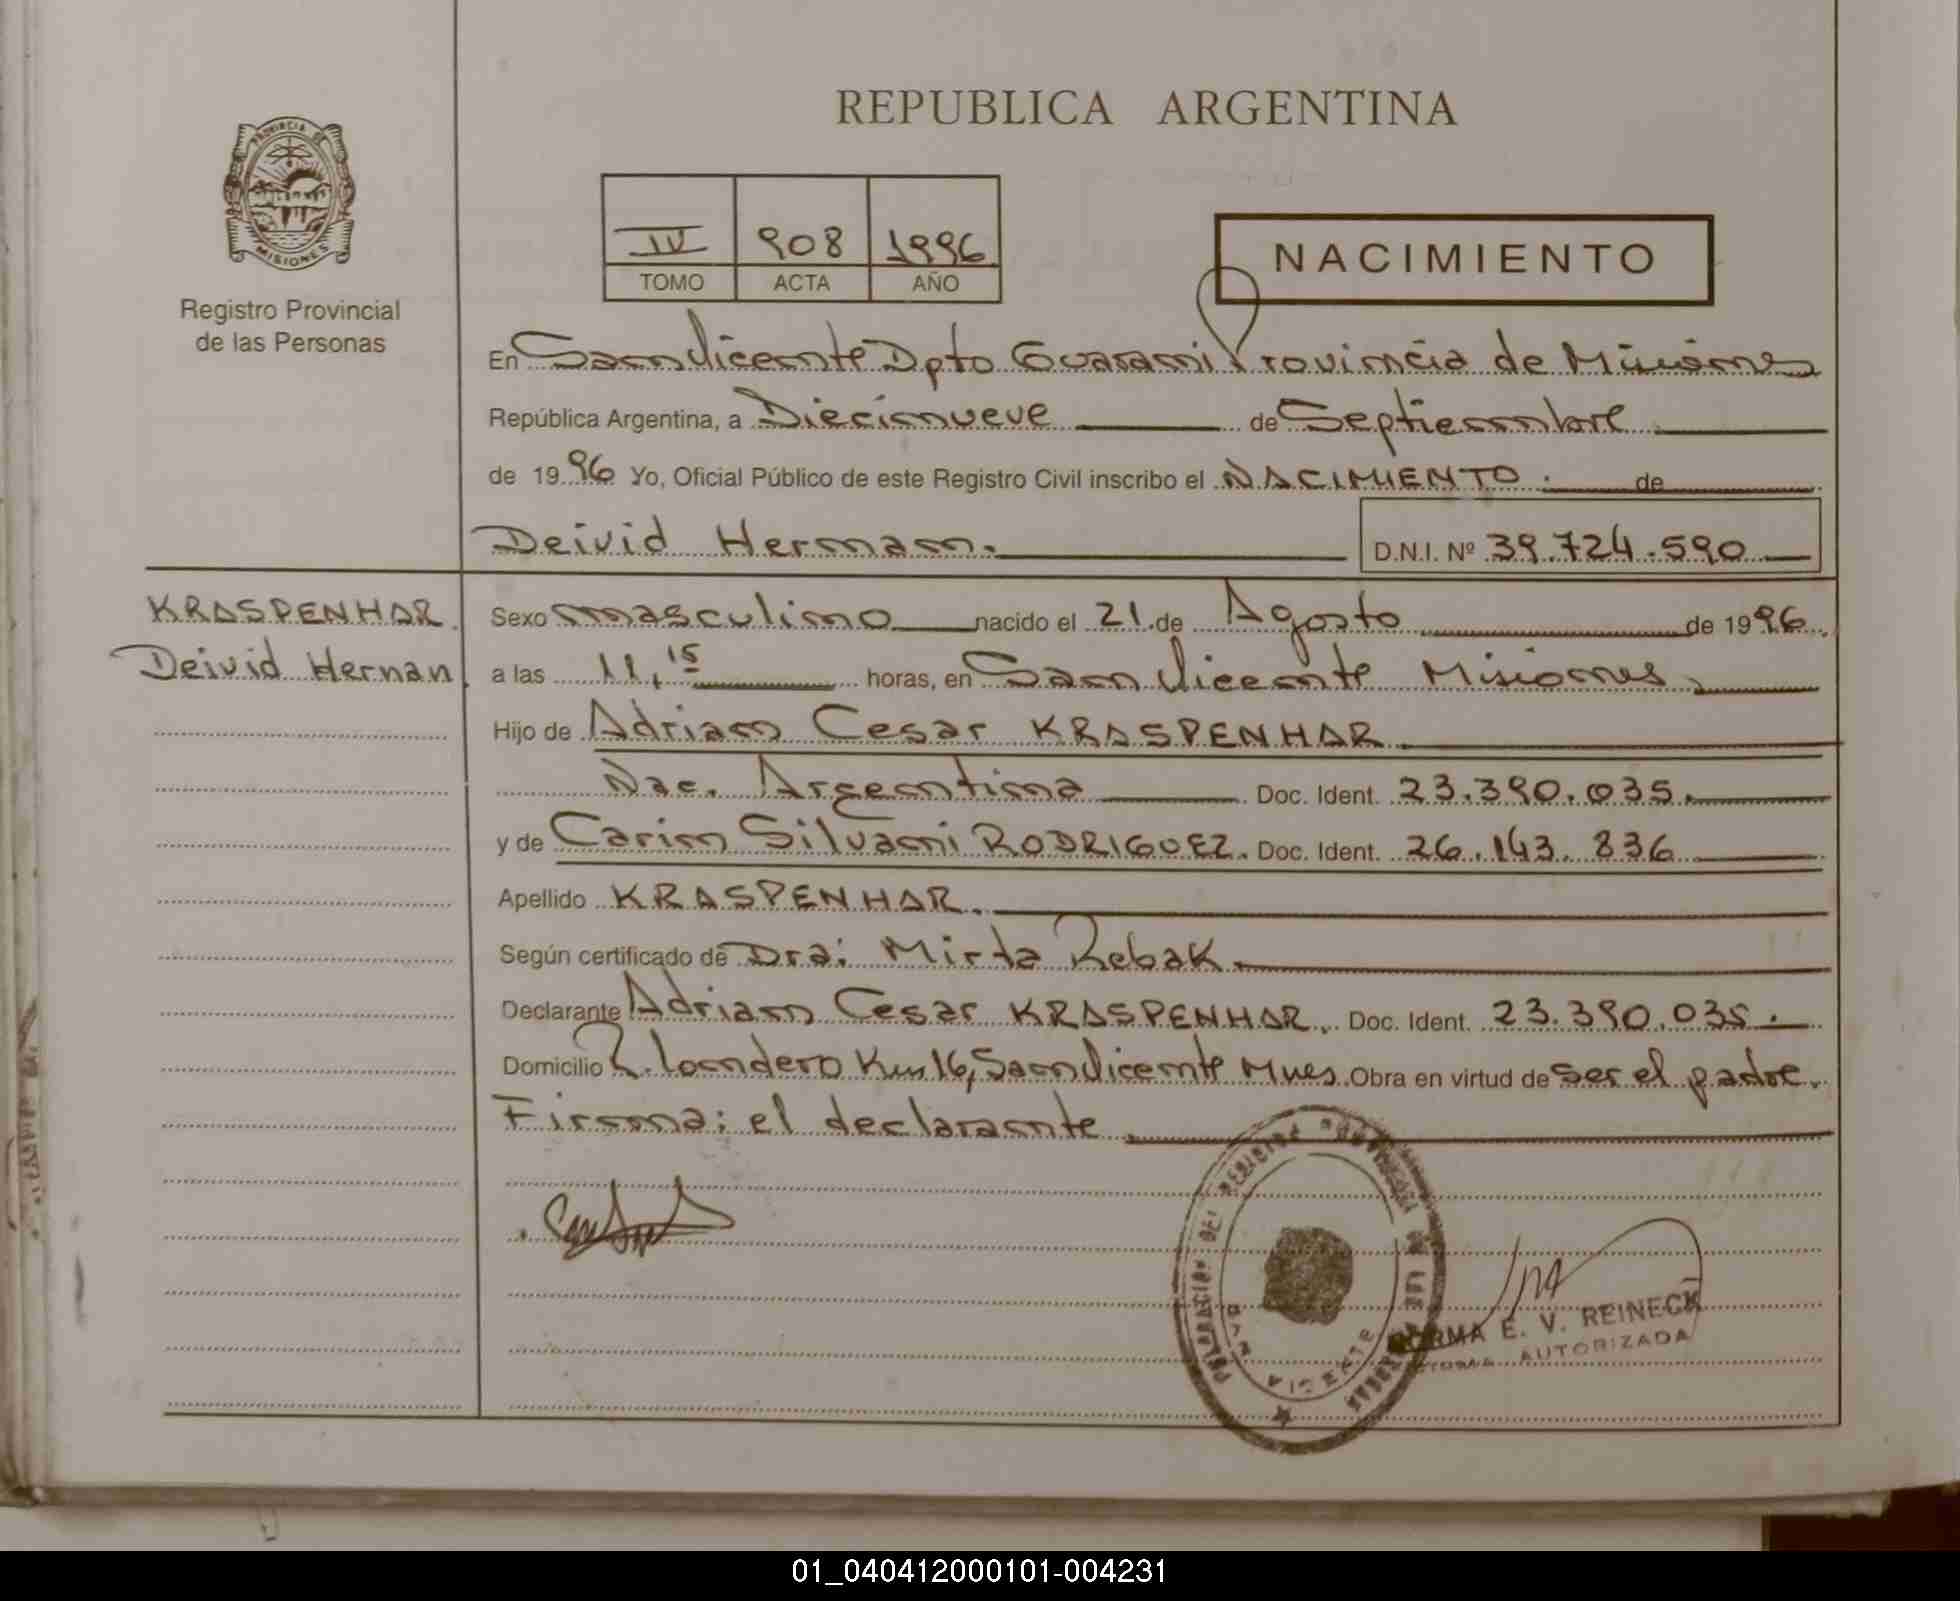 REPUBLICA ARGENTINA
PROVINCIA DE
MISIONES
Registro Provincial
de las Personas
IV 908 1996
TOMO ACTA AÑO
NACIMIENTO
En San Vicente Dpto Guarani Provincia de Misiones
República Argentina, a Diecinueve de Septiembre
de 1996 Yo, Oficial Público de este Registro Civil inscribo el NACIMIENTO. de
Deivid Hernan. D.N.I. Nº 39.724.590
KRASPENHAR.
Deivid Hernan
Sexo masculino nacido el 21 de Agosto de 1996.
a las 11,15 horas, en San Vicente Misiones
Hijo de Adrian Cesar KRASPENHAR
Nac. Argentina Doc. Ident. 23.390.035.
y de Carin Silvani RODRIGUEZ. Doc. Ident. 26.143.836
Apellido KRASPENHAR.
Según certificado de Dra: Mirta Rebak
Declarante Adrian Cesar KRASPENHAR. Doc. Ident. 23.390.035.
Domicilio Km 16, San Vicente Mnes. Obra en virtud de ser el padre.
Firma: el declarante
VICENTE
NORMA E. V. REINECK
FIRMA AUTORIZADA
01_040412000101-004231